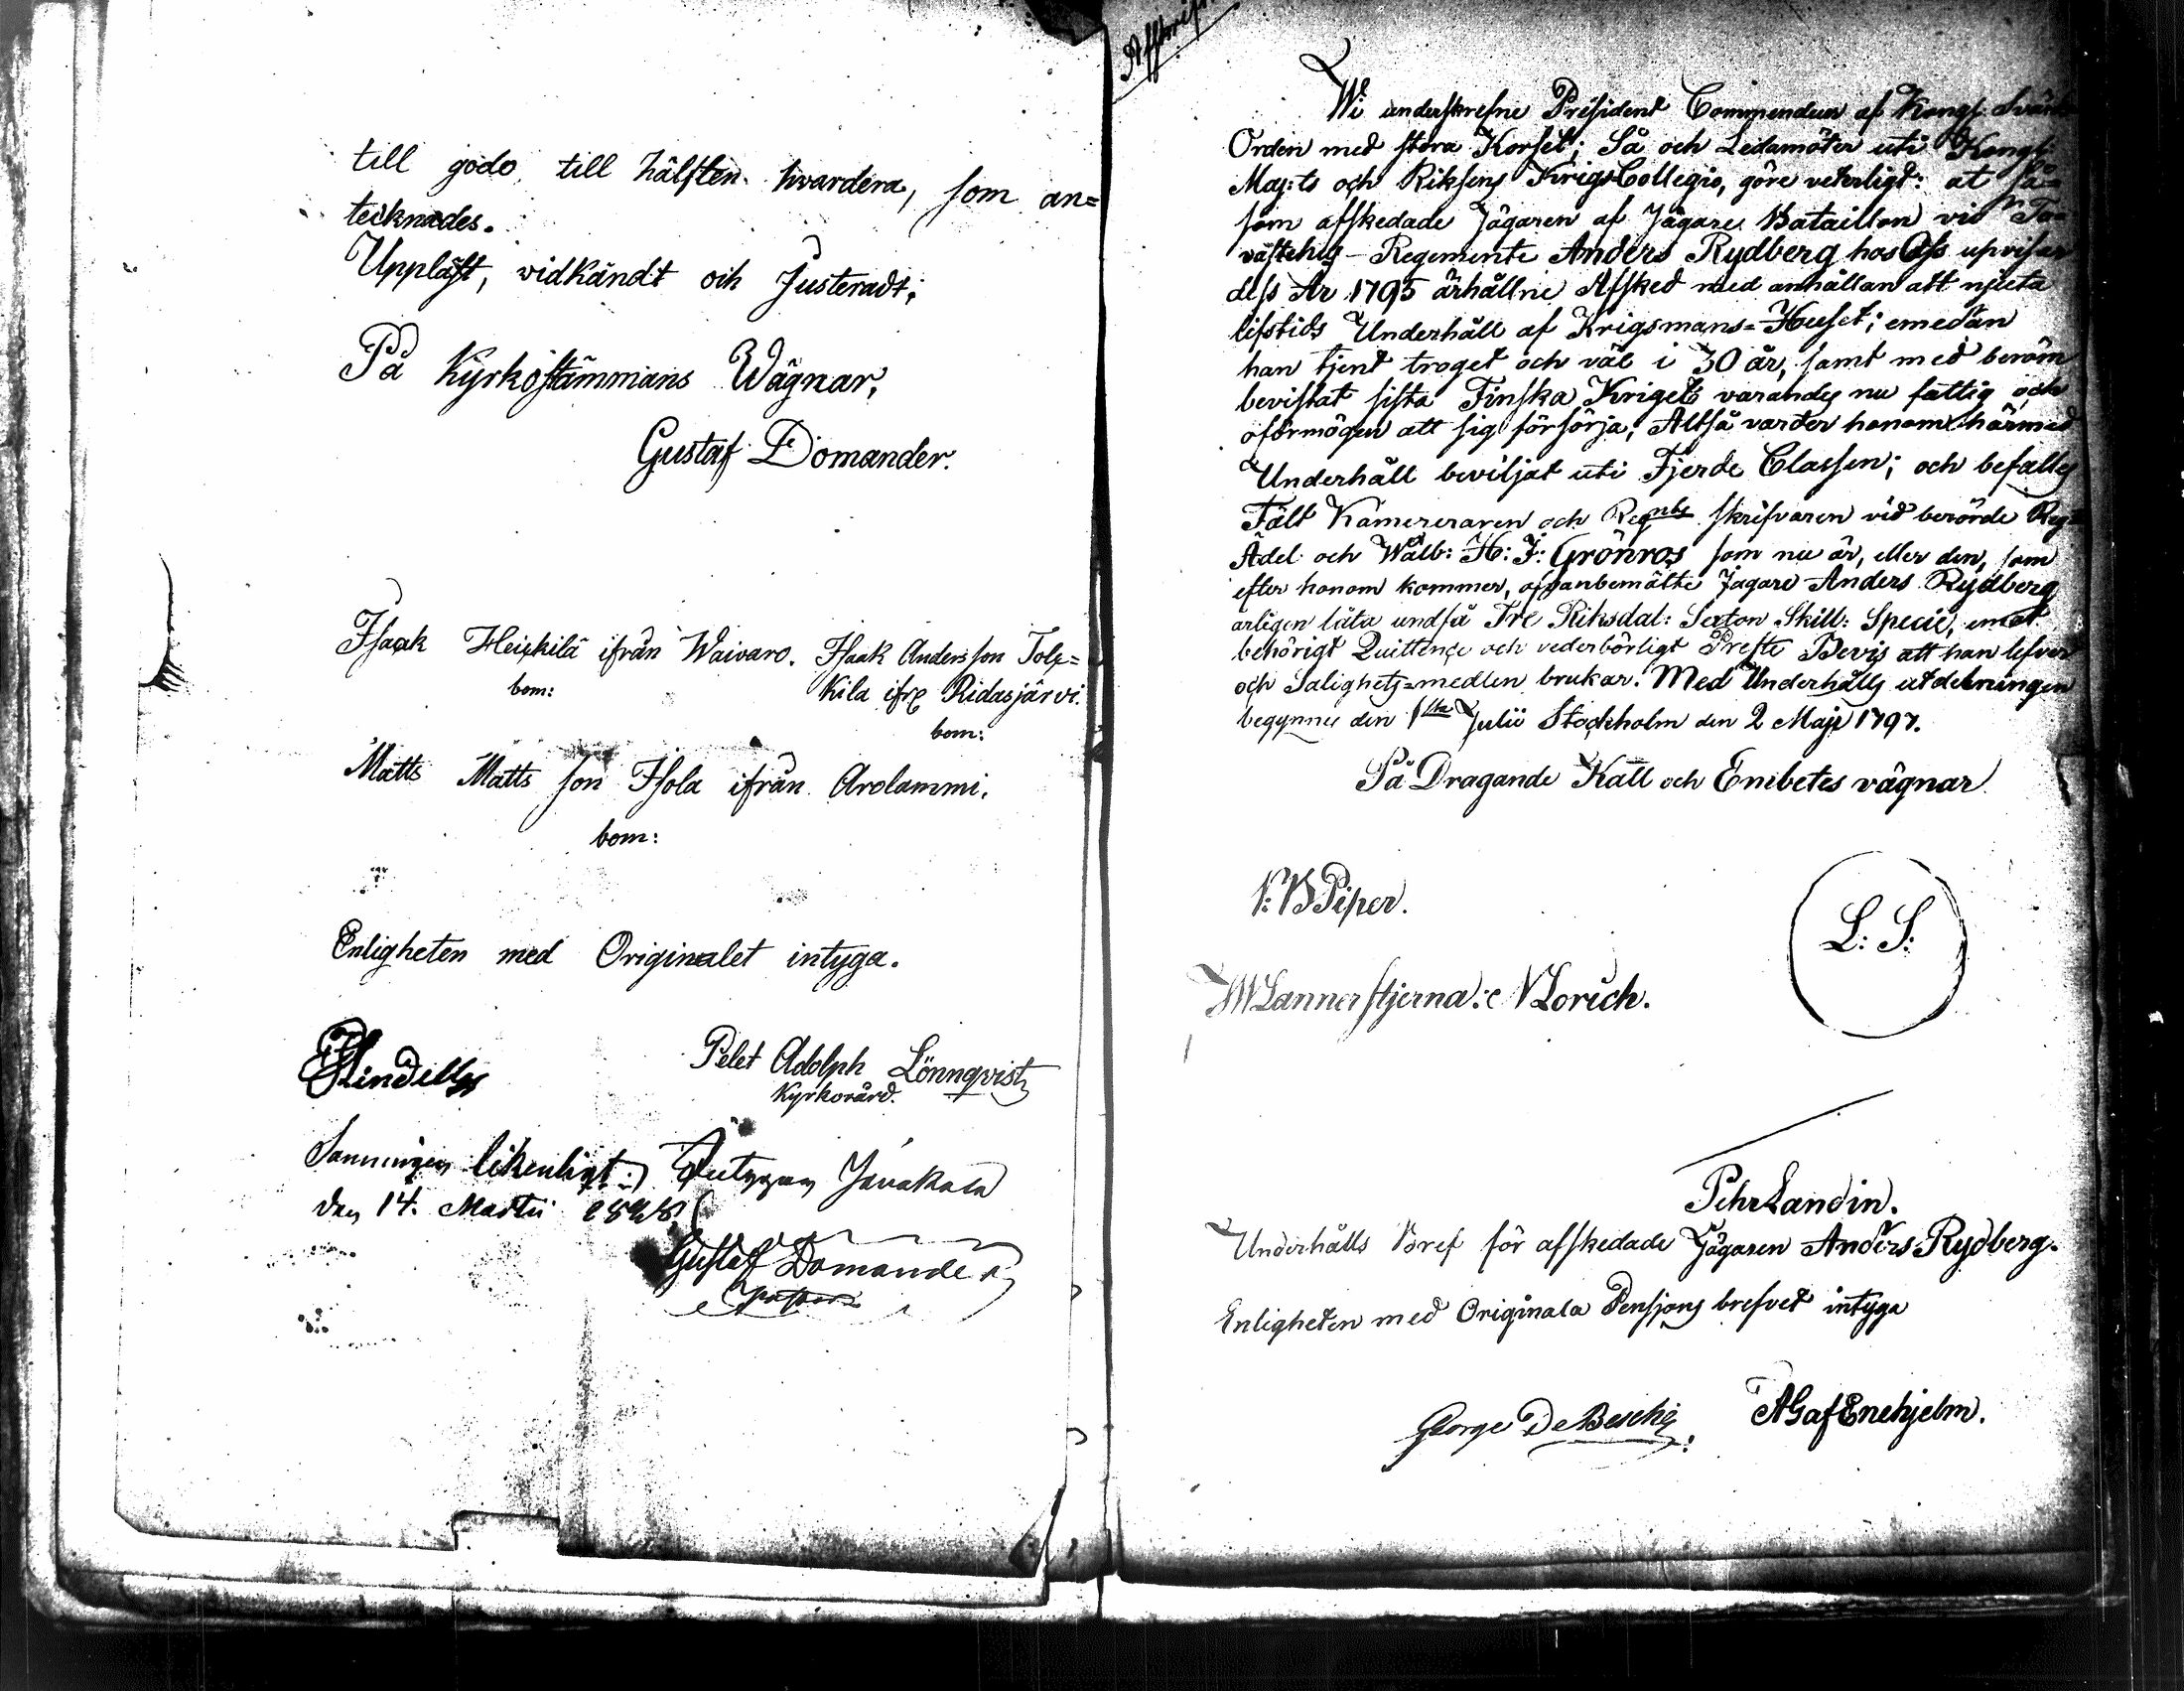 till godo, till hälften hvardera, som an=
tecknades.
Uppläst, vidkändt och Justeradt;
På Kyrkostämmans Wägnar,
Gustaf Domander.
Isaak Heickilä ifrån Waivaro. Isaak Andersson Tolc=
bom: kila ifrå Ridasjärvi.
bom:
Matts Mattsson Isola ifrån Arolammi.
bom:
Enligheten med Originalet intyga.
Adolph Lönnqvist
Kyrkovärd.
likenligt
den 14. Martii
Gustaf Domander
Affskrift
Wi underskrefne President Commendeur af Kongl. Svärds
Orden med stora Korset; Så och Ledamöter uti Kongl.
Maj:ts och Riksens KrigsCollegio, göre veterligt: at så=
som afskedade Jägaren af Jägare Bataillon vid Ta=
västehus Regemente Anders Rydberg hos Oss upviser
dess År 1795 ärhållne Afsked med anhållan att njuta
lifstids Underhåll af Krigsmans=Huset; emedan
han tjent troget och väl i 30 år, samt med beröm
bevistat sista Finska Kriget varandes nu fattig och
oförmögen att sig försörja; Altså varder honom härmed
Underhåll beviljat uti Fjerde Classen; och befalles
Fält Kamereraren och Reg:nts skrifvaren vid berörde Reg:te
Ädel och Wälb: H: J: Grönros som nu är, eller den, som
efter honom kommer, ofvanbemälte Jägare Anders Rydberg
årligen låta undfå Tre Riksdal: Sexton Skill: Specie, emot
behörigt Quittence och vederbörligt Preste Bevis att han lefver
och Salighets=medlen brukar. Med Underhålls utdelningen
begynnes den 1sta Julii Stockholm den 2 Maji 1797.
På Dragande Kall och Embetes vägnar
Piper.
L: S:
Lannerstjerna. Lorich.
Pehr Landin.
Underhålls Bref för afskedade Jägaren Anders Rydberg.
Enligheten med Originala Pensions brefvet intyga
George De Besche. AG af Enehjelm.